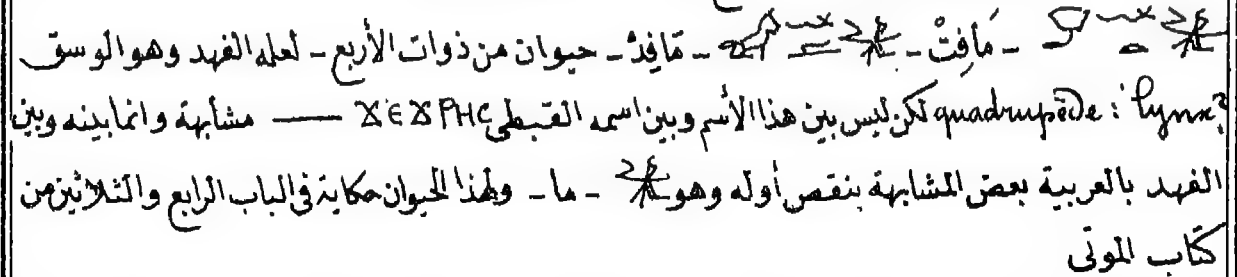 - مَافِتْ - - مَافِدْ - حيوان من ذوات الأربع - لعله الفهد وهو الوسق
quadrupède : lynx? لكن ليس بين هذا الأسم وبين اسمه القبطى ϪⲈϪⲢⲎⲤ — مشابهة وانما بينه وبين
الفهد بالعربية بعض المشابهة بنقص أوله وهو - ما - ولهذا الحيوان حكاية فى الباب الرابع والثلاثين من
كتاب الموتى